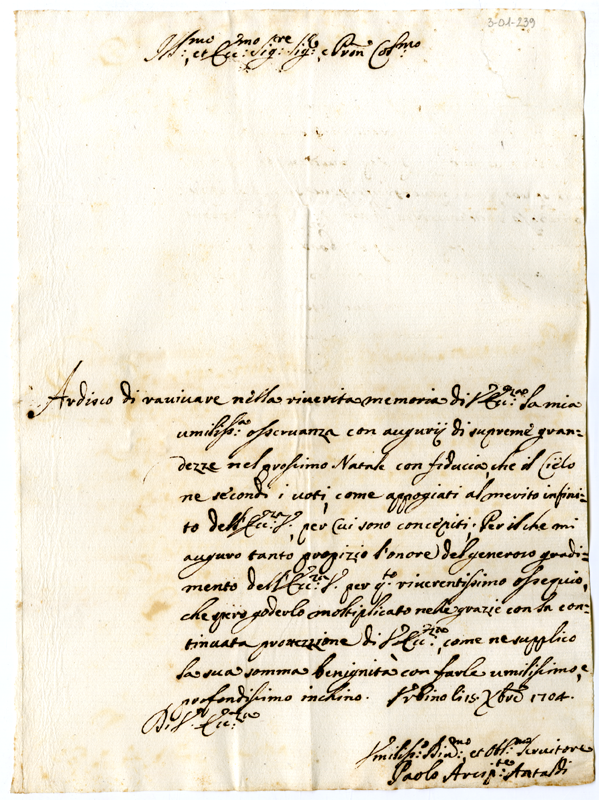 3-01-239
Ill:mo et Ecc:mo Sig:re Sig:re e Pron Col:mo
Ardisco di ravivare nella riverita memoria di V. Ecc:za la mia
umiliss:a osservanza con augurij di supreme gran-
dezze nel prossimo Natale con fiducia, che il Cielo
ne secondi i voti, come appogiati al merito infini-
to dell'Ecc:za V., per cui sono concepiti; Per il che mi
auguro tanto propizio l'onore del generoso gradi-
mento dell'Ecc:za V. per q:to riverentissimo ossequio,
che spero goderlo moltiplicato nelle grazie con la con-
tinuata protezzione di V. Ecc:za, come ne supplico
la sua somma benignità con farle umilissimo, e
profondissimo inchino. Urbino li 15 Xbre 1704.
Di V. Ecc:za
Umiliss:o Dia:mo et Obl:mo Servitore
Paolo Arcip:te Antaldi